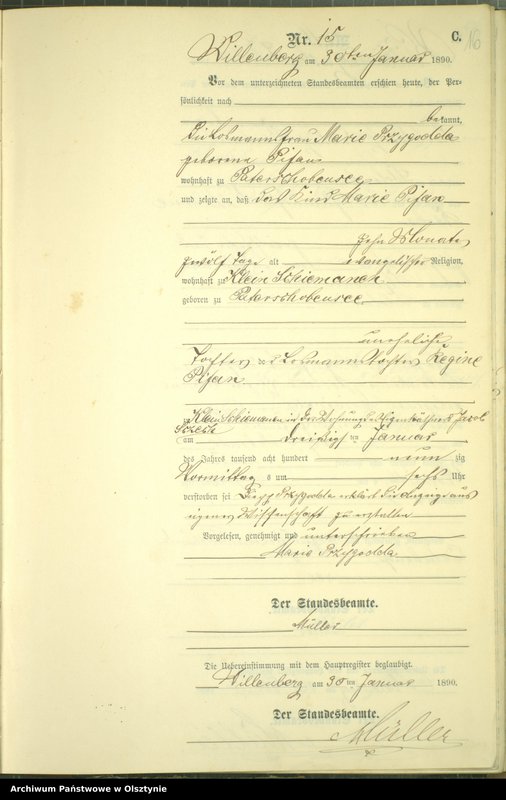 Nr. 15
C.
16
Willenberg am 30ten Januar 1890.
Vor dem unterzeichneten Standesbeamten erschien heute, der Per-
sönlichkeit nach
bekannt,
die Losmannsfrau Marie Przygodda
geborene Pifan
wohnhaft zu Paterschobensee
und zeigte an, daß das Kind Marie Pifan
zehn Monate
zwölf Tage alt evangelischer Religion,
wohnhaft zu Klein Schiemanen
geboren zu Paterschobensee
uneheliche
Tochter der Losmannstochter Regine
Pifan
Klein Schiemanen in der Wohnung des Eigenkäthners Jacob
am dreißigsten Januar
des Jahres tausend acht hundert neunzig
Vormittags um sechs Uhr
verstorben sei Przygodda erklärt die Anzeige aus
eigener Wissenschaft zu erstatten
Vorgelesen, genehmigt und unterschrieben
Marie Przygodda
Der Standesbeamte.
Müller
Die Uebereinstimmung mit dem Hauptregister beglaubigt.
Willenberg am 30ten Januar 1890.
Der Standesbeamte.
Müller
Archiwum Państwowe w Olsztynie